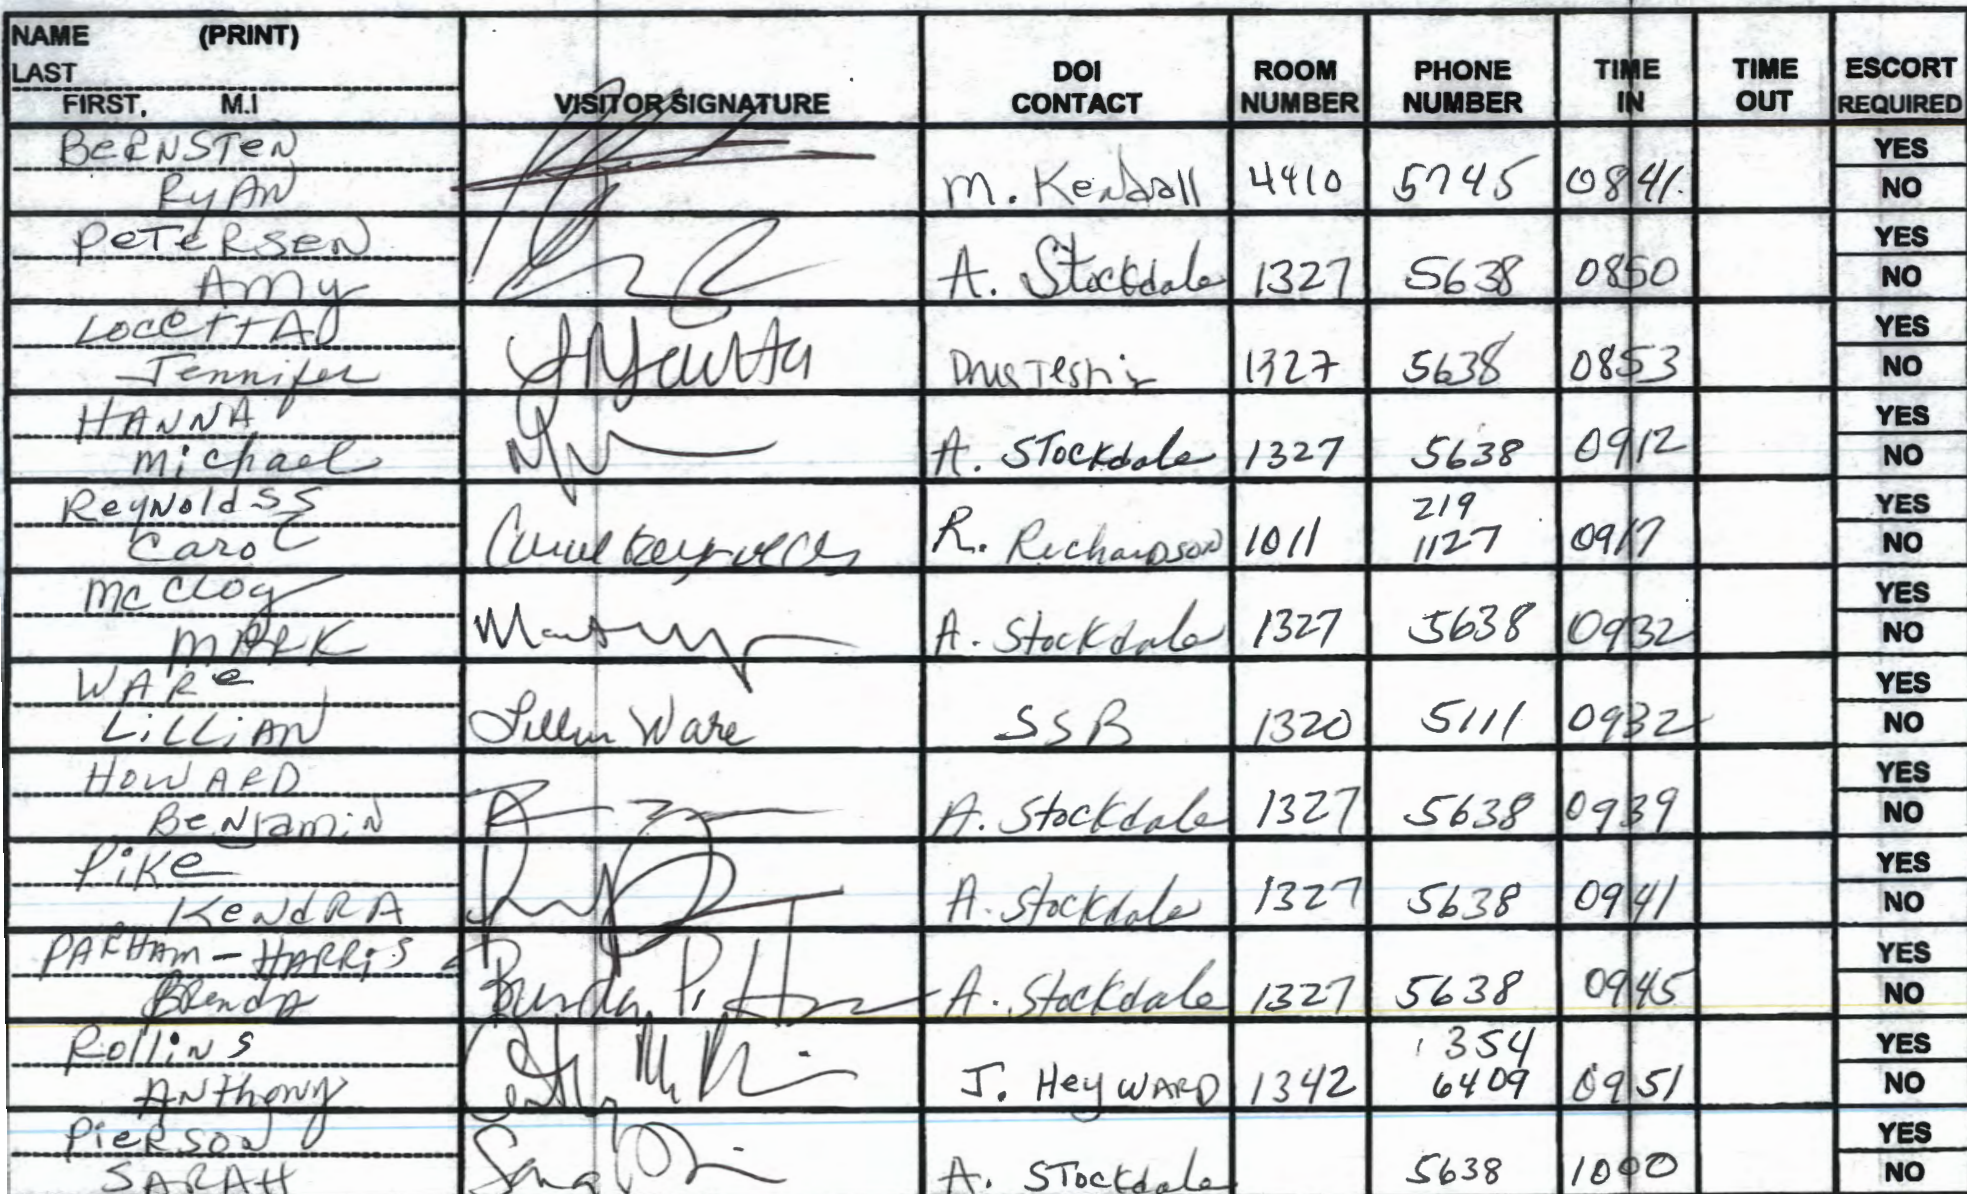 NAME (PRINT)
LAST
FIRST, M.I
VISITOR SIGNATURE
DOI CONTACT
ROOM NUMBER
PHONE NUMBER
TIME IN
TIME OUT
ESCORT REQUIRED
BERNSTEN
RYAN
M. Kendall 4410 5745 0841
YES
NO
PETERSEN
Amy
A. Stockdale 1327 5638 0850
YES
NO
LOCETTA
Jennifer
Drug Testing 1327 5638 0853
YES
NO
HANNA
Michael
A. Stockdale 1327 5638 0912
YES
NO
Reynolds S
Carol
Carol Reynolds
R. Richardson 1011 219 1127 0917
YES
NO
McCloy
MARK
A. Stockdale 1327 5638 0932
YES
NO
WARE
LILLIAN
Lillian Ware
SSB 1320 5111 0932
YES
NO
HOWARD
Benjamin
A. Stockdale 1327 5638 0939
YES
NO
Pike
KENDRA
A. Stockdale 1327 5638 0941
YES
NO
PARHAM-HARRIS
Brenda
Brenda P. H
A. Stockdale 1327 5638 0945
YES
NO
Rollins
Anthony
J. HeyWARD 1342 354 6409 0951
YES
NO
Pierson
SARAH
A. Stockdale 5638 1000
YES
NO